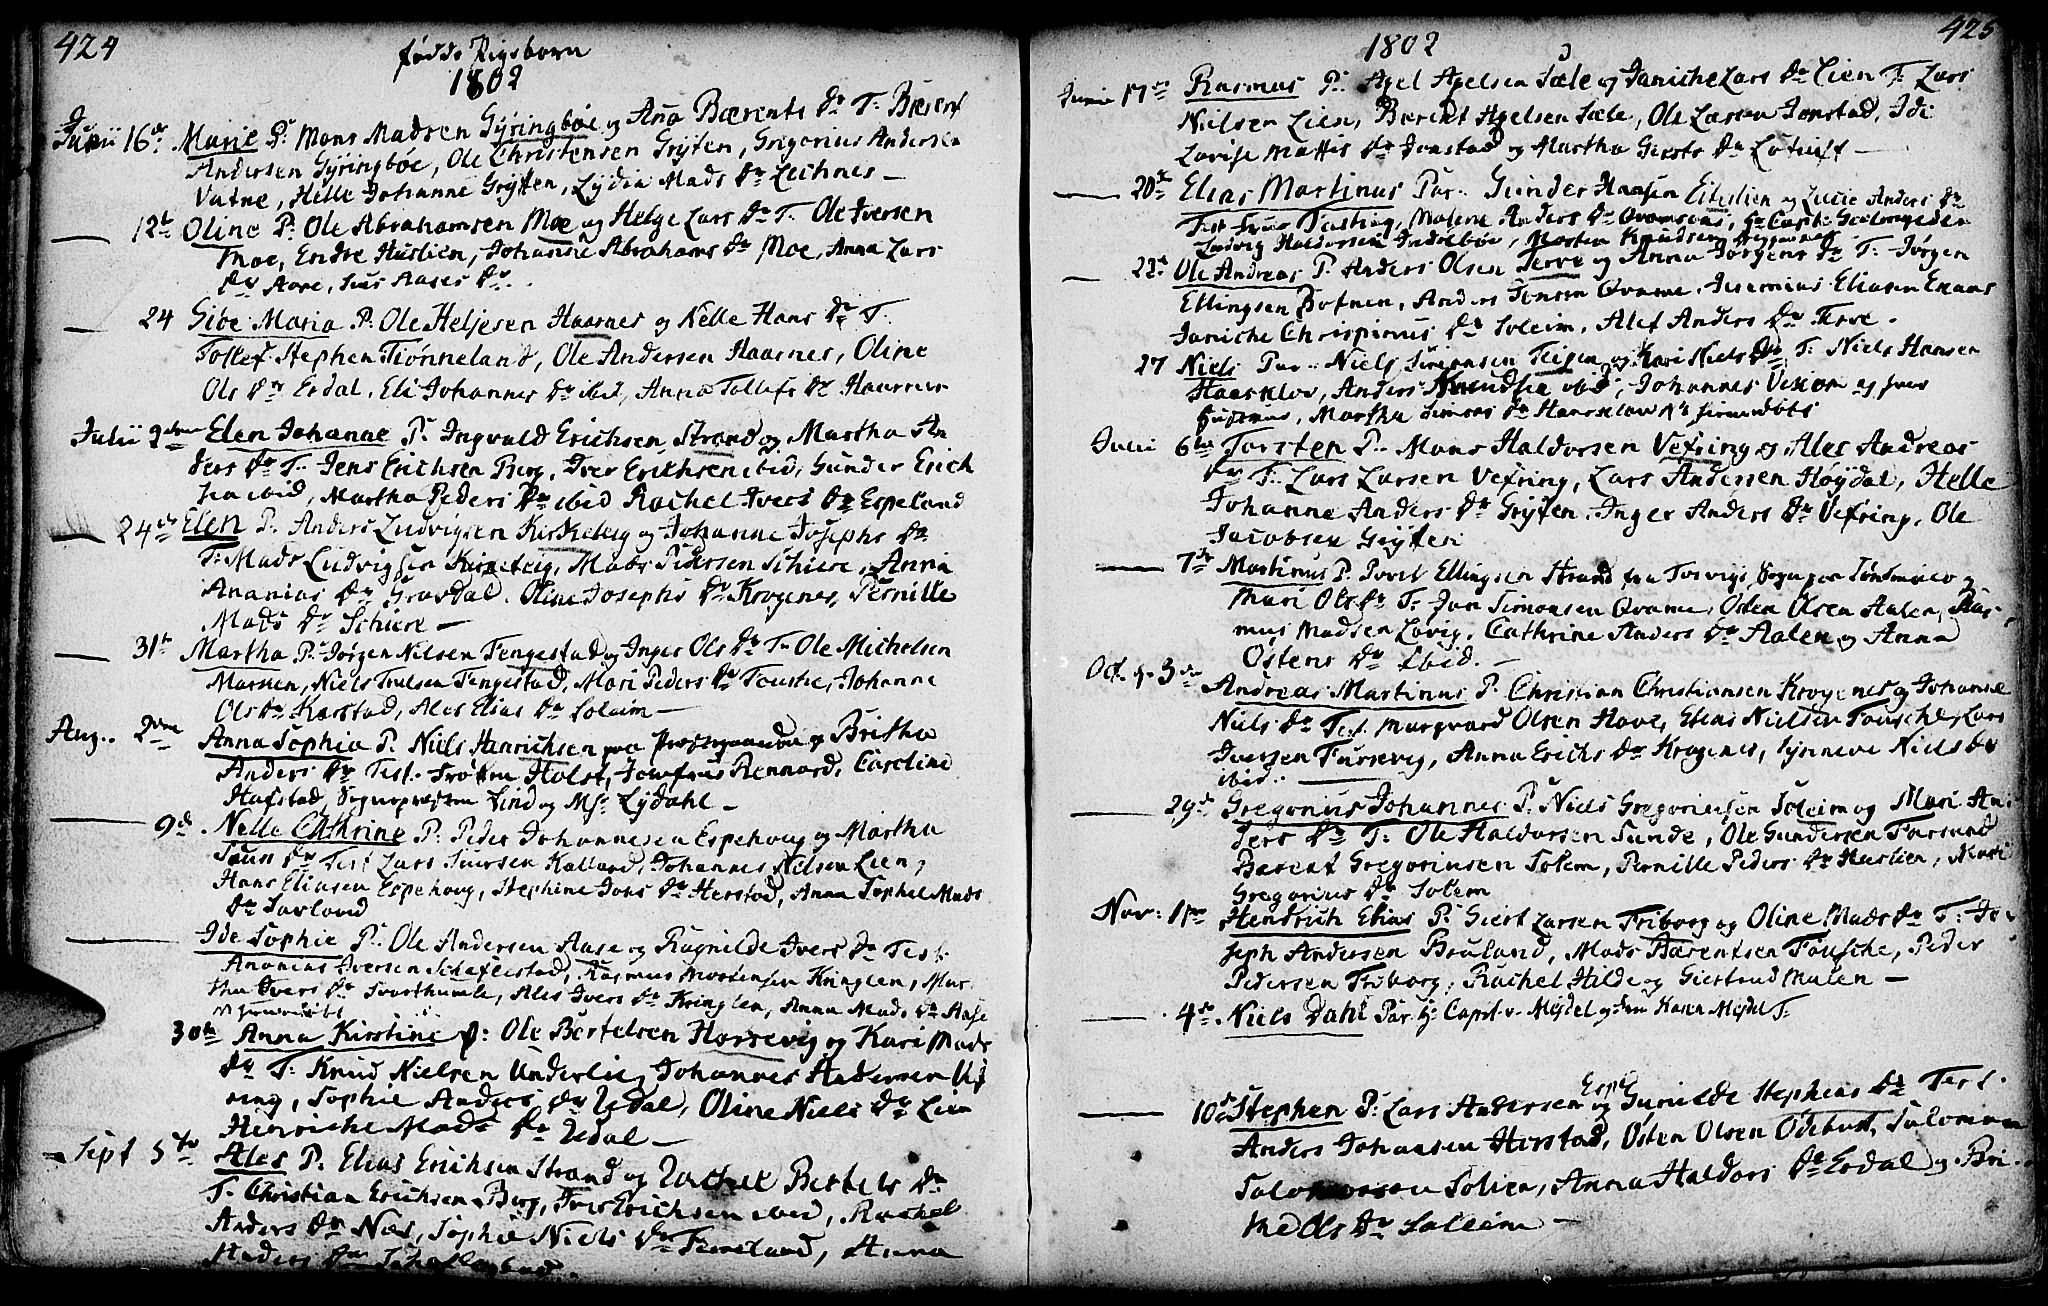 424
fødde Pigebørn
1802
Junii 16de Marie P. Mons Madsen Gÿringbøe og Ana Bærents Dr T. Bærent
Andersen Gÿringbøe, Ole Christensen Grÿten, Gregorius Andersen
Vatne, Helle Johanne Grÿtten, Lÿdia Mads Dr Leitnes —
12te Oline P. Ole Abrahamsen Moe og Helge Lars Dr T. Ole Iversen
Moe, Endre Huslien, Johanne Abrahams Dr Moe, Anna Lars
Dr Aase,
24 Sibe Maria P. Ole Heljesen Haarnes og Nelle Hans Dr T.
Tollef Stephen Tiønneland, Ole Andersen Haarnes, Oline
Ols Dr Erdal, Eli Johannes Dr ibid, Anna Tollefs Dr Haarnes
Julii 2den Elen Johanne P. Ingvald Erichsen Strand og Martha An
ders Dr T. Jens Erichsen Berg, Iver Erichsen ibid, Gunder Erich
sen ibid, Martha Peders Dr ibid Rachel Ivers Dr Espeland
24de Elen P. Anders Ludvigsen Kirkebeig og Johanne Josephs Dr
T. Mads Ludvigsen Kirkebeig, Mads Pedersen Schiere, Anna
Ananias Dr Gravdal, Oline Josephs Dr Krogenes, Pernille
Mads Dr Schiere —
31te Martha P. Jørgen Nilsen Tengestad og Inger Ols Dr T. Ole Michelsen
Marsten, Niels Truelsen Tengestad, Mari Peders Dr Tousche, Johanne
Ols Dr Karstad, Ales Elias Dr Soleim —
Aug. 2den Anna Sophia P. Niels Henrichsen paa Præstegaarden og Britha
Anders Dr Test. Frøken Holst, Jomfrue Rennord, Caroline
Hafstad, Sogneprest Lind og Mr. Lÿdahl —
9de Nelle Cathrine P. Peder Johannesen Espehoug og Martha
Dr Test Lars Kalland, Johannes Nilsen Lien,
Hans Eliasen Espehoug, Stephine Jons Dr Herstad, Anna Sophie Mads
Dr Savland
Ide Sophie P. Ole Andersen Aase og Ragnilde Ivers Dr Test.
Ananias Iversen Scheflestad, Rasmus Mortensen Kringlen, Mar
tha Ivers Dr Svorthumle, Ales Ivers Dr Kringlen, Anna Mads Dr Aase
30te Anna Kirstine P. Ole Bertelsen Horsevig og Kari Mads
Dr T. Knud Nielsen Underlie, Johannes Andersen Vef
ring, Sophie Anders Dr Udal, Oline Niels Dr Lien
Henriche Mads Dr Udal —
Sept 5te Ales P. Elias Erichsen Strand og Rachel Bertels Dr
T. Christian Erichsen Berg, Iver Erichsen ibid, Rachel
Anders Dr Næs, Sophie Niels Dr Timeland, Anna
Anders Dr Scheflestad.
425
1802
Junii 17de Rasmus P. Axel Axelsen Sæle og Janiche Lars Dr Lien T. Lars
Nielsen Lien, Bærent Axelsen Sæle, Ole Larsen Jonstad, Ide
Lovise Mattis Dr Jonstad og Martha Gierts Dr —
20de Elias Martinus Par. Gunder Hansen Eikelien og Lucie Anders Dr
Test Malene Anders Dr Qvamsaas, Hr Capt.
Ludvig Haldorsen Indrebøe, Morten Knudsen
22de Ole Andreas P. Anders Olsen Terve og Anna Jørgens Dr T. Jørgen
Ellingsen Botnen, Anders Jensen Qvame, Jeremias Eliasen
Janiche Chrispinus Dr Soleim, Alet Anders Dr Terve.
27 Niels Par. Niels Sørensen Teigen og Kari Niels Dr T. Niels Hansen
Haarklov, Anders ibid, Johannes Vexom og hans
Hustrue, Martha Simons Dr Haarklow
Julii 6te Torsten P. Mons Haldorsen Vefring og Ales Andreas
Dr T. Lars Larsen Vefring, Lars Andersen Høÿdal, Helle
Johanne Anders Dr Grÿten, Inger Anders Dr Vefring, Ole
Jacobsen Grÿten
7de Martinus P. Povel Ellingsen Strand fra og
Mari Ols Dr T. Jon Simonsen Qvame, Osten Olsen Aalen, Ras-
mus Madsen Lovig, Cathrine Anders Dr Aalen og Anna
Ostens Dr ibid. —
Oct. 3die Andreas Martinus P. Christian Christiansen Krogenes og Johanne
Niels Dr Test. Margvard Olsen Hove, Elias Nielsen Tousche, Lars
Iversen Fursevig, Anna Erichs Dr Krogenes, Synneve Niels Dr
ibid. —
29de Gregorius Johannes P. Niels Gregoriusen Soleim og Mari An
ders Dr T. Ole Haldorsen Sunde, Ole Gundersen Farsund
Barent Gregoriusen Solem, Pernille Peders Dr Huslien, Mari
Gregorius Dr Solem
Nov: 1ste Hendrich Elias P. Giert Larsen Friborg og Oline Mads Dr T. Jo
seph Andersen Bruland, Mads Bærentsen Tousche, Peder
Pedersen Friborg, Rachel Hilde og Giertrud Mulen —
4de Niels Dahl Par Hr Capt. v. Mejdel og Karen Mejdel T.
10de Stephen P. Lars Andersen Esp og Gunilde Stephens Dr Test.
Anders Johansen Herstad, Osten Olsen Odebust, Salomon
Salomonsen Solien, Anna Haldors Dr Erdal og Bri
the Ols Dr Soleim —